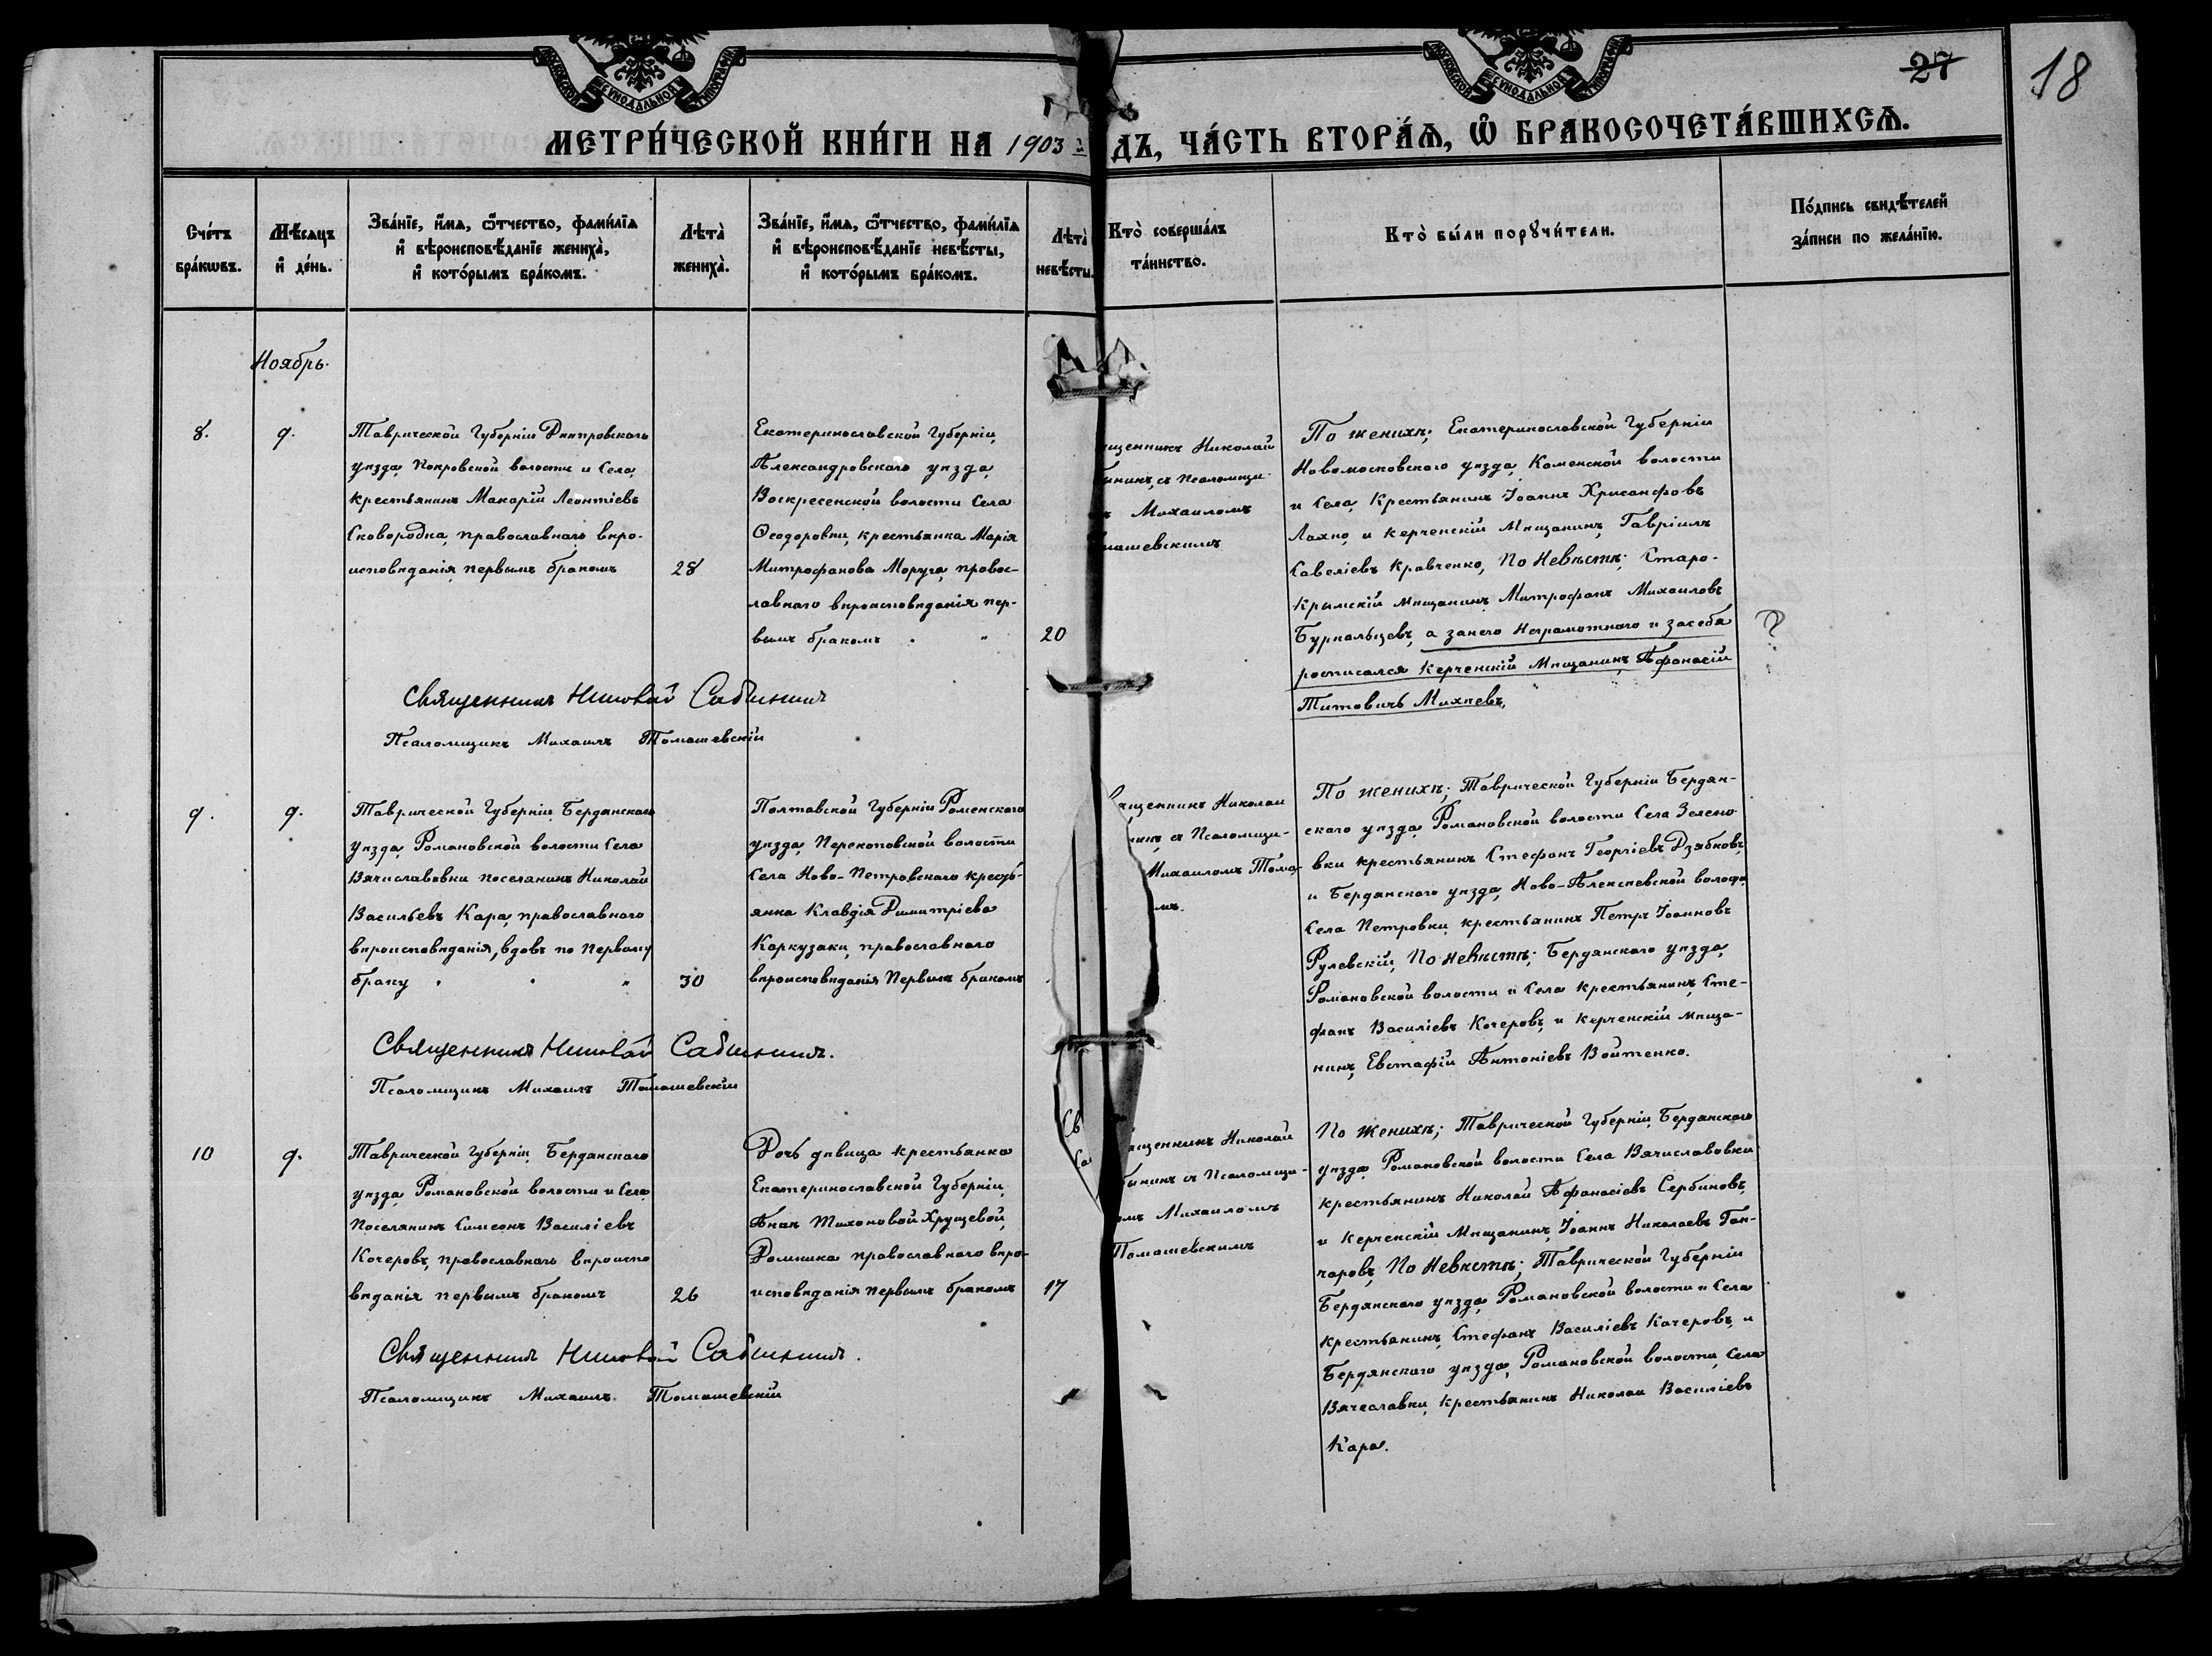 МОСКОВСКОЙ СѴНОДАЛЬНОЙ ТИПОГРАФІИ
МОСКОВСКОЙ СѴНОДАЛЬНОЙ ТИПОГРАФІИ
27
18
МЕТРИ́ЧЕСКОЙ КНИ́ГИ НА 1903 й
ДЪ, ЧА́СТЬ ВТОРА́Ѧ, Ѽ БРАКОСОЧЕТА́ВШИХСѦ.
Сче́тъ
бра́кѡвъ.
Мѣ́сѧцъ
и҆ де́нь.
Зва́нїе, и҆́мѧ, ѻ҆́тчество, фами́лїѧ
и҆ вѣроисповѣ́данїе жениха̀,
и҆ кото́рымъ бра́комъ.
Лѣта̀
жениха̀.
Зва́нїе, и҆́мѧ, ѻ҆́тчество, фами́лїѧ
и҆ вѣроисповѣ́данїе невѣ́сты,
и҆ кото́рымъ бра́комъ.
Лѣта̀
невѣ́сты.
Кто̀ соверша́лъ
та́инство.
Кто̀ бы́ли порꙋчи́тели.
По́дпись свидѣ́телей
за́писи по жела́нїю.
Ноябрь.
8.
9.
Таврической Губерніи Днѣпровскаго
уѣзда, Покровской волости и Села,
крестьянинъ Макарій Леонтіевъ
Сковородка, православнаго вѣро-
исповѣданія, первымъ бракомъ
28
Екатеринославской Губерніи,
Александровскаго уѣзда,
Воскресенской волости Села
Ѳеодоровки, крестьянка Марія
Митрофанова Моруга, правос-
лавнаго вѣроисповѣданія пер-
вымъ бракомъ
20
щенникъ Николай
бининъ, съ Псаломщи-
ъ Михаиломъ
машевскимъ
По женихѣ; Екатеринославской Губерніи
Новомосковскаго уѣзда, Каменской волости
и Села, Крестьянинъ Іоаннъ Хрисанфовъ
Лахно, и керченскій Мѣщанинъ, Гавріилъ
Савеліевъ Кравченко, По Невѣстѣ; Старо-
крымскій мѣщанинъ, Митрофанъ Михаиловъ
Буркальцевъ, а занего Неграмотнаго и засебя
росписался Керченскій Мѣщанинъ, Афанасій
Титовичъ Михѣевъ,
?
Священникъ Николай Сабининъ
Псаломщикъ Михаилъ Томашевскій
9.
9.
Таврической Губерніи, Бердянскаго
уѣзда, Романовской волости Села
Вячиславовки поселянинъ Николай
Васильевъ Кара, православнаго
вѣроисповѣданія, вдовъ по Первому
браку
30
Полтавской Губерніи Роменскаго
уѣзда, Перекоповской волости
Села Ново-Петровскаго кресть-
янка Клавдія Димитріева
Каркузаки, православнаго
вѣроисповѣданія Первымъ бракомъ
щенникъ Николай
нинъ, съ Псаломщи-
Михаиломъ Тома-
мъ.
По женихѣ; Таврической Губерніи Бердян-
скаго уѣзда, Романовской волости Села Зелено
вки крестьянинъ Стефанъ Георгіевъ Дзябковъ,
и Бердянскаго уѣзда, Ново-Алексѣевской волости,
Села Петровки, крестьянинъ Петръ Іоанновъ
Рулевскій, По невѣстѣ; Бердянскаго уѣзда,
Романовской волости и Села крестьянинъ, Сте-
фанъ Василіевъ Кочеровъ, и Керченскій мѣща-
нинъ, Евстафій Антоніевъ Войтенко.
Священникъ Николай Сабининъ.
Псаломщикъ Михаилъ Томашевскій
10
9.
Таврической Губерніи, Бердянскаго
уѣзда, Романовской волости и Села
Поселянинъ Симеонъ Василіевъ
Кочеровъ, православнаго вѣроиспо
вѣданія первымъ бракомъ
26
Дочь дѣвица крестьянка
Екатеринославской Губерніи,
Анны Тихоновой Хрущевой,
Домника православнаго вѣро-
исповѣданія первымъ бракомъ
17
Св
Са
щенникъ Николай
бининъ съ Псаломщи-
омъ Михаиломъ
Томашевскимъ
По Женихѣ; Таврической Губерніи, Бердянскаго
уѣзда, Романовской волости Села Вячиславовки
крестьянинъ Николай Афанасіевъ Сербиновъ,
и Керченскій Мѣщанинъ, Іоаннъ Николаевъ Гон-
чаровъ, По Невѣстѣ; Таврической Губерніи
Бердянскаго уѣзда, Романовской волости и Села
крестьянинъ, Стефанъ Василіевъ Кочеровъ, и
Бердянскаго уѣзда, Романовской волости, Села
Вячеславки, крестьянинъ Николай Василіевъ
Кара.
Священникъ Николай Сабининъ.
Псаломщикъ Михаилъ Томашевскій